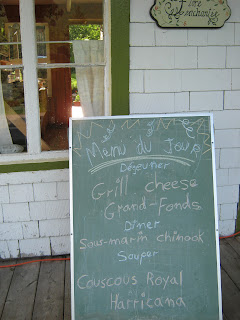 enchantée
Menu du Jour
Déjeuner
Grill cheese
Grand-Fonds
Dîner
Sous-marin chinook
Souper
Couscous Royal
Harricana